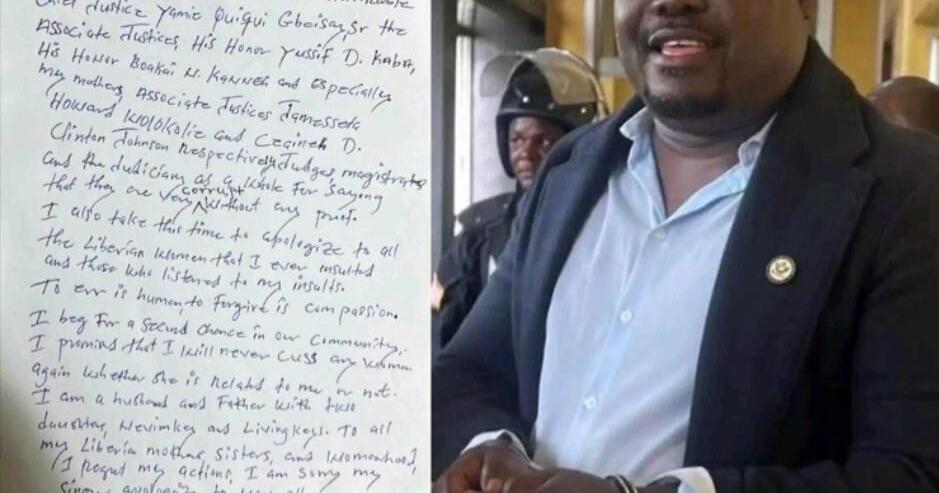 Chief Justice Yamie Quiqui Gbeisay, Sr the
Associate Justices, His Honor Yussif D. Kaba,
His Honor Boakai N. Kanneh and Especially
my mothers, Associate Justices Jamesseta
Howard Wolokolie and Ceaineh D.
Clinton Johnson Respectively, Judges, magistrates
and the Judiciary as a whole for saying
that they are very corrupt without any proof.
I also take this time to apologize to all
the Liberian women that I ever insulted
and those who listened to my insults.
To err is human, to forgive is compassion.
I beg for a second chance in our community.
I promise that I will never cuss any woman
again whether she is related to me or not.
I am a husband and Father with two
daughters, and Livingkeys. To all
my Liberia mothers, sisters, and womanhood,
I my actions, I am sorry my